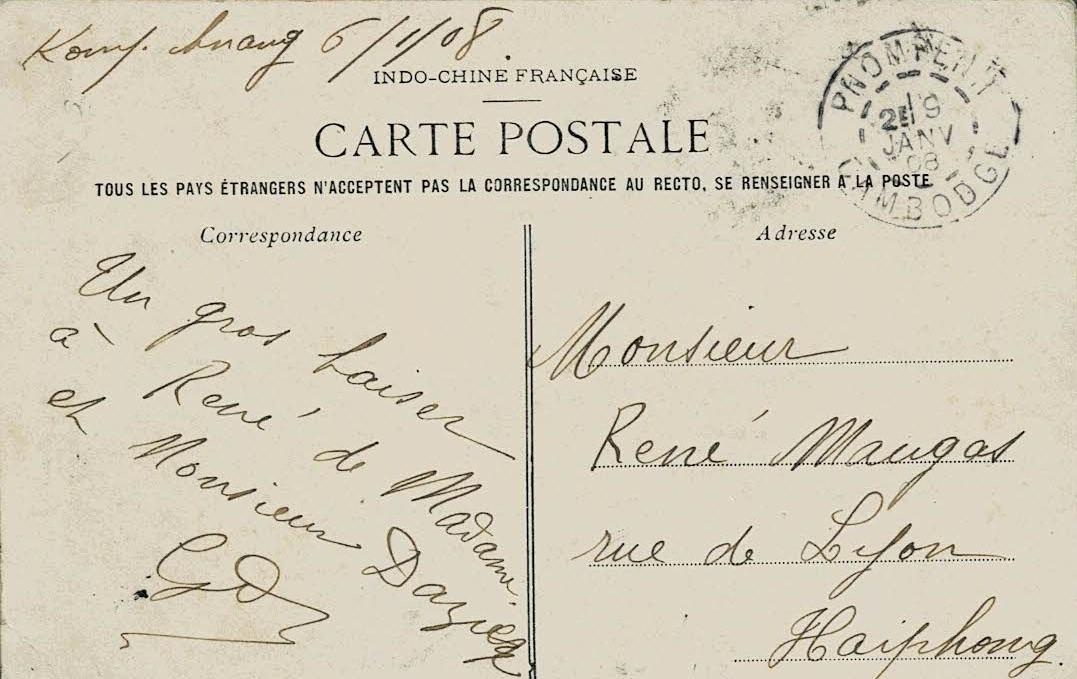 Komp. chnang 6/1/08.
INDO-CHINE FRANÇAISE
CARTE POSTALE
TOUS LES PAYS ÉTRANGERS N'ACCEPTENT PAS LA CORRESPONDANCE AU RECTO, SE RENSEIGNER A LA POSTE
PNOMPENH
2E 9
JANV
08
CAMBODGE
Correspondance
Un gros baiser
à René de Madame
et Monsieur
GD
Adresse
Monsieur
René Maugas
rue de Lyon
Haiphong.